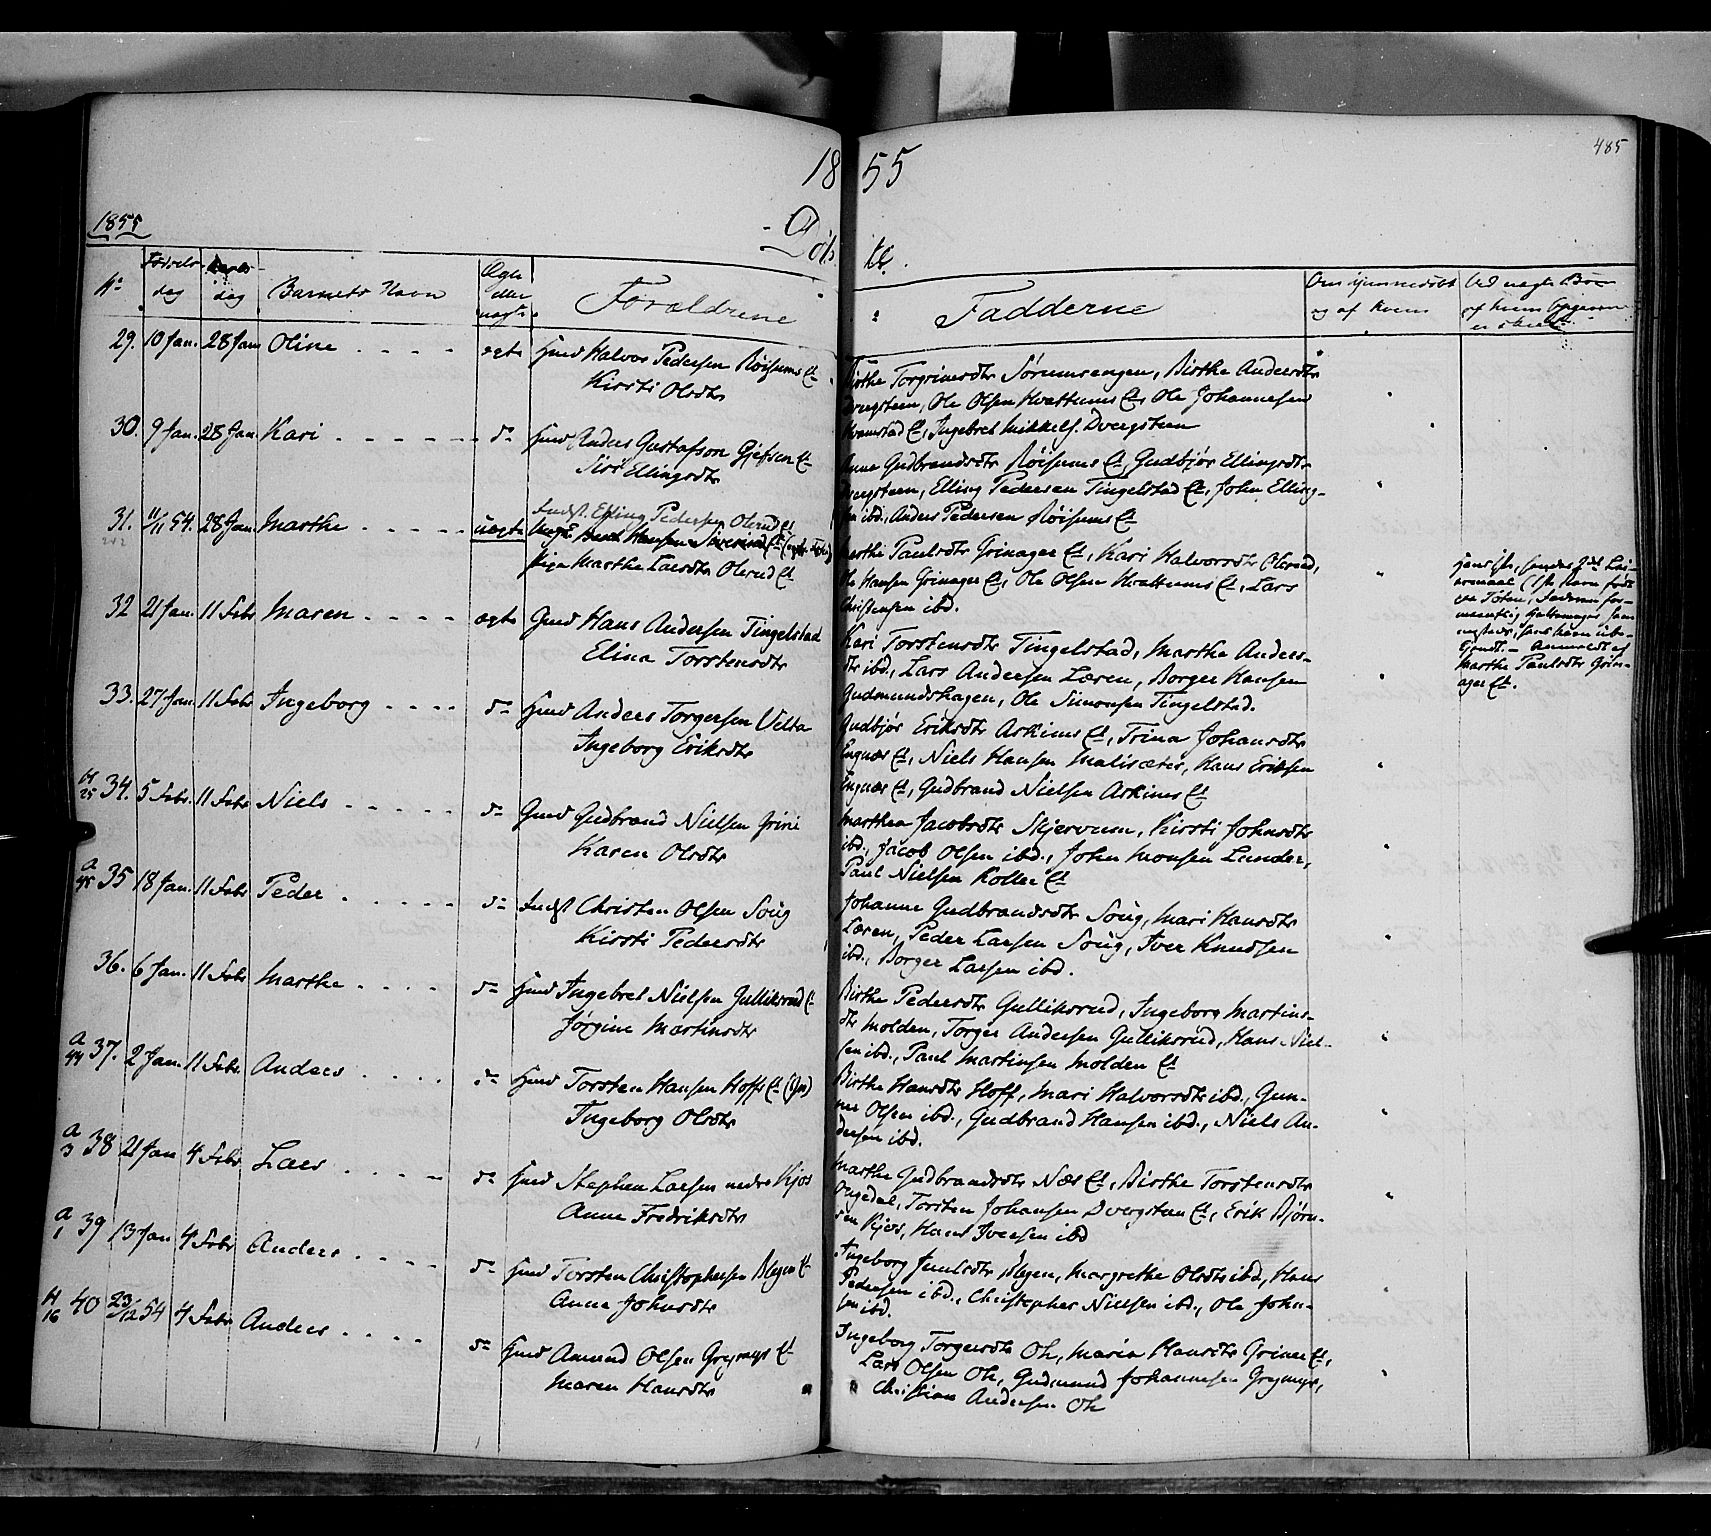 18 55
485
1855
Døb te.
No Fødsels- dag Daabs- dag Barnets Navn Ægte eller uægte Forældrene
Fadderne Om hjemmedøbt og af hvem Ved uægte Børn af hvem Opgaven er skeet
29. 10 Jan. 28 Jan Oline ægte Gmd Halvor Pedersen Røisums Et
Kirsti Olsdtr
Birthe Torgrimsdtr Sørumsengen, Birthe Andersdtr
Dvergsteen, Ole Olsen Hvattums Et, Ole Johannesen
Hvamstad Et, Ingebret Mikkels. Dvergsteen
30. 9 Jan. 28 Jan. Kari do Hmd Anders Gustafson Gjefsen Et
Siri Ellingsdtr
Anne Gudbrandsdtr Røisums Et, Gudbjør Ellingsdtr
Dvergsteen, Elling Pedersen Tingelstad Et, John Elling-
sen ibd., Anders Pedersen Røisums Et
31. 11/11 54. 28 Jan. Marthe uægte Indst. Elling Pedersen Olerud Et
Hansen
Pige Marthe Larsdtr Olerud Et
Marthe Paulsdtr Grinager Et, Kari Halvorsdtr Olerud,
Ole Hansen Grinager Et, Ole Olsen Hvattums Et, Lars
Christensen ibd.
Toten, Faderen for-
Anmeldt af
Marthe Paulsdtr Grin-
ager Et.
32 21 Jan. 11 Febr Maren ægte Gmd Hans Andersen Tingelstad
Elina Torstensdtr
Kari Torstensdtr Tingelstad, Marthe Anders-
dtr ibd., Lars Andersen Læren, Borger Hansen
Gudmundshagen, Ole Simensen Tingelstad.
33. 27 Jan. 11 Febr Ingeborg do Hmd Anders Torgersen Velta
Ingeborg Eriksdtr
Gudbjør Eriksdtr Askims Et, Trina Johansdtr
Engnæs Et, Niels Hansen Malisæter, Hans Eriksen
Engnæs Et, Gudbrand Nielsen Askims Et
H 25 34. 5 Febr. 11 Febr Niels do Gmd Gudbrand Nielsen Grini
Karen Olsdtr
Marthea Jacobsdtr Skjervum, Kirsti Johnsdtr
ibd., Jacob Olsen ibd., John Monsen Lunder,
Paul Nielsen Koller Et
A 45 35 18 Jan. 11 Febr Peder do Indst Christen Olsen Soug
Kirsti Pedersdtr
Johanne Gudbrandsdtr Soug, Mari Hansdtr
Læren, Peder Larsen Soug, Iver Knudsen
ibd., Borger Larsen ibd.
36. 6 Jan. 11 Febr Marthe do Hmd Ingebret Nielsen Gulliksrud Et
Jørgine Martinsdtr
Birthe Pedersdtr Gulliksrud, Ingeborg Martins-
dtr Molden, Torger Andersen Gulliksrud, Hans Niel-
sen ibd., Paul Martinsen Molden Et
A 44 37. 2 Jan. 11 Febr Anders do Hmd Torsten Hansen Hoffs Et
Ingeborg Olsdtr
Birthe Hansdtr Hoff, Mari Halvorsdtr ibd., Gun-
ne Olsen ibd., Gudbrand Hansen ibd., Niels An-
dersen ibd.
A 3 38 21 Jan 4 Febr Lars do Hmd Stephen Larsen nedre Kjos
Anne Fredriksdtr
Marthe Gudbrandsdtr Næs Et, Birthe Torstensdtr
Torsten Johansen Dvergsteen Et, Erik Bjørn-
sen Kjos, Hans Iversen ibd
A 1 39 13 Jan 4 Febr Anders do Hmd Torsten Christophersen Blegen Et
Anne Johnsdtr
Ingeborg Juulsdtr Blegen, Margrethe Olsdtr ibd, Hans
Pedersen ibd., Christopher Nielsen ibd., Ole John-
sen ibd.
H 16 40 23/12 54 4 Febr Anders do Hmd Amund Olsen Grymyr Et
Maren Hansdtr
Ingeborg Torgersdtr Oh, Maria Hansdtr Grina Et,
Lars Olsen Oh, Gudmund Johannesen Grymyr,
Christian Andersen Oh